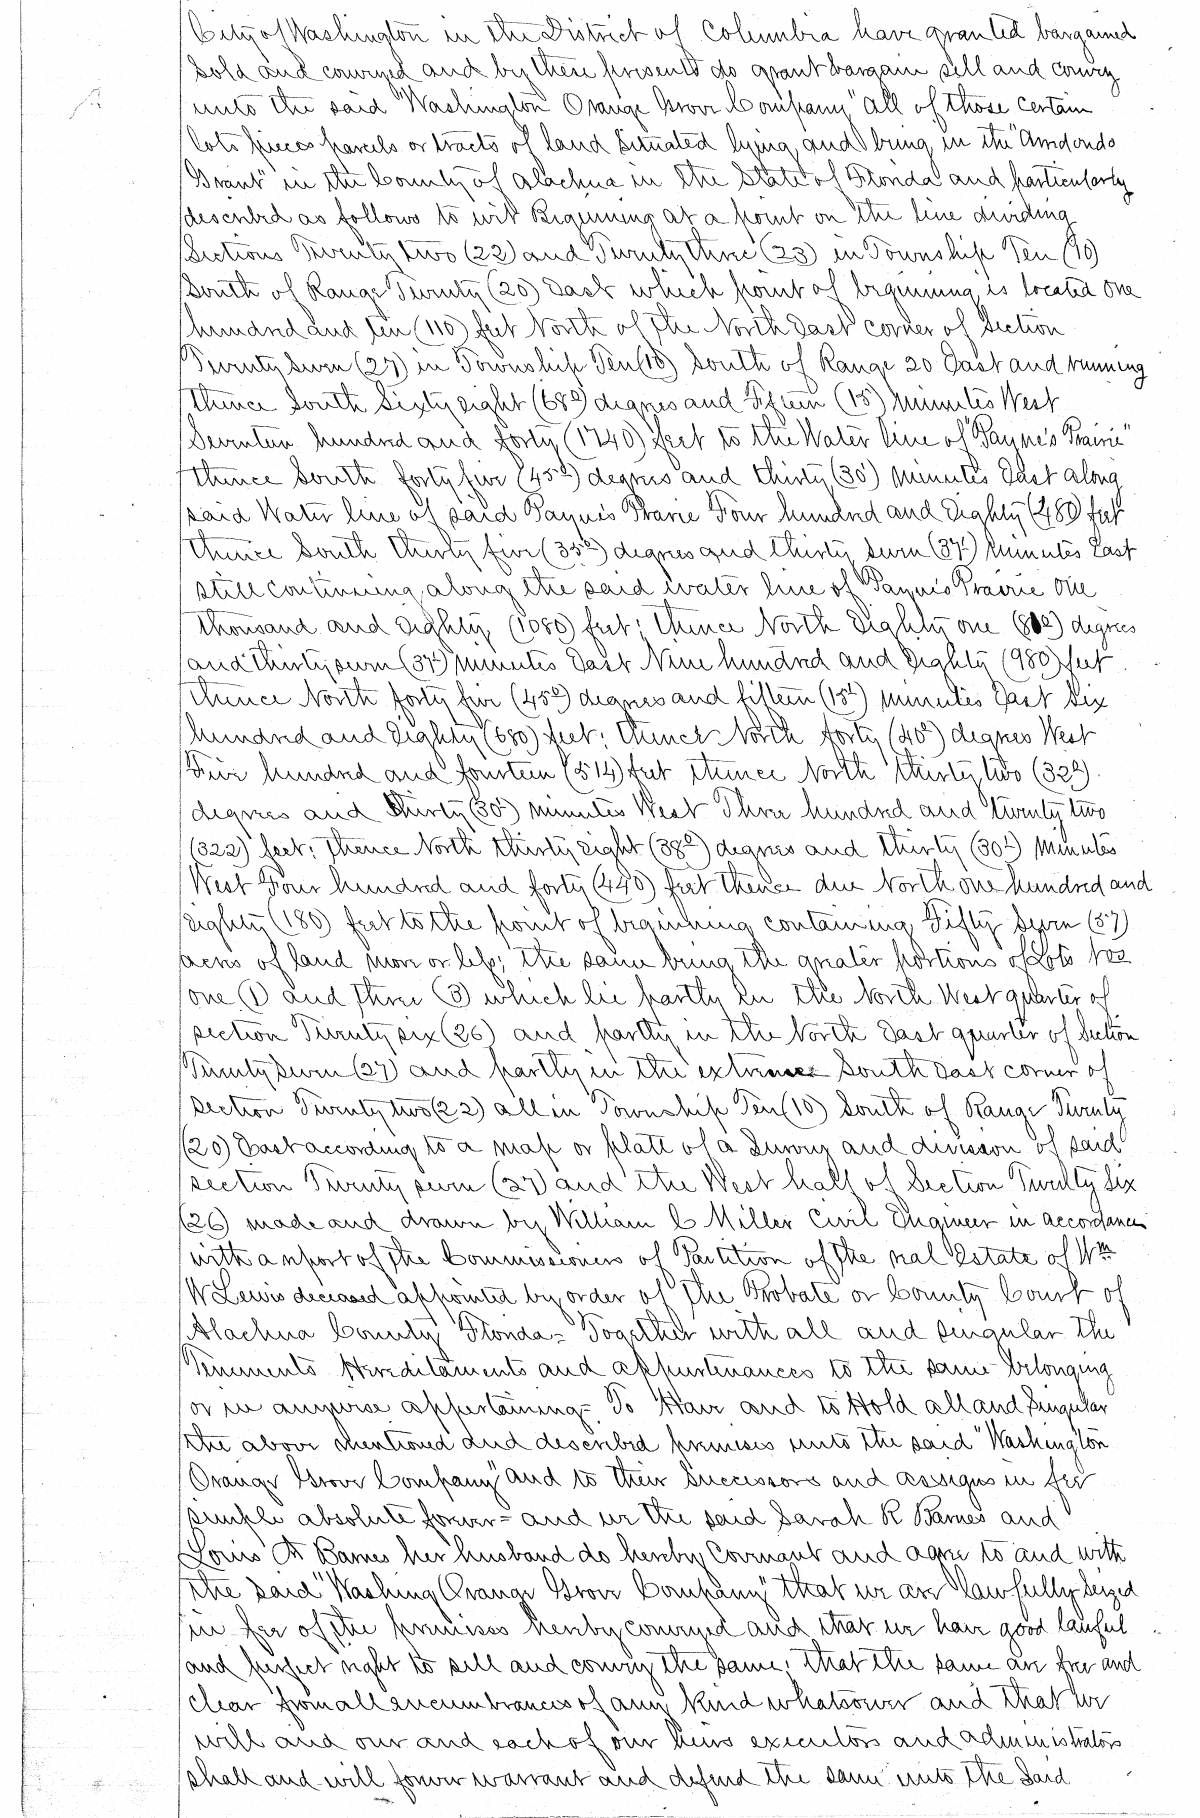 City of Washington in the District of Columbia have granted bargained
Sold and conveyed and by these presents do grant bargain sell and convey
unto the said "Washington Orange Grove Company" all of those certain
lots pieces parcels or tracts of land Situated lying and being in the "Arredondo
Grant" in the County of Alachua in the State of Florida and particularly
described as follows to wit Beginning at a point on the line dividing
Sections Twenty two (22) and Twenty three (23) in Township Ten (10)
South of Range Twenty (20) East which point of beginning is located one
hundred and ten (110) feet North of the North East corner of Section
Twenty Seven (27) in Township Ten (10) South of Range 20 East and running
thence South Sixty eight (68°) degrees and Fifteen (15') minutes West
Seventeen hundred and forty (1740) feet to the Water line of "Payne's Prairie"
thence South forty five (45°) degrees and thirty (30') minutes East along
said Water line of said Payne's Prarie Four hundred and Eighty (480) feet
thence South thirty five (35°) degrees and thirty seven (37') minutes East
still continuing along the said water line of Payne's Prairie one
thousand and Eighty (1080) feet; thence North Eighty one (81°) degrees
and thirty seven (37') minutes East Nine hundred and Eighty (980) feet
thence North forty five (45°) degrees and fifteen (15') minutes East Six
hundred and Eighty (680) feet; thence North forty (40°) degrees West
Five hundred and fourteen (514) feet thence North thirty two (32°)
degrees and thirty (30') minutes West Three hundred and twenty two
(322) feet; thence North thirty eight (38°) degrees and thirty (30') minutes
West Four hundred and forty (440) feet thence due North one hundred and
eighty (180) feet to the point of beginning containing Fifty Seven (57)
acres of land more or less; the same being the greater portions of Lots Nos
one (1) and three (3) which lie partly in the North West quarter of
section Twenty six (26) and partly in the North East quarter of Section
Twenty Seven (27) and partly in the extreme South East corner of
section Twenty two (22) all in Township Ten (10) South of Range Twenty
(20) East according to a map or platt of a Survey and division of said
section Twenty seven (27) and the West half of Section Twenty Six
(26) made and drawn by William C Miller Civil Engineer in accordance
with a report of the Commissioners of Partition of the real Estate of Wm
W Lewis deceased appointed by order of the Probate or County Court of
Alachua County Florida = Together with all and singular the
Tenements Hereditaments and appurtenances to the same belonging
or in anywise appertaining = To Have and to Hold all and Singular
the above mentioned and described premises unto the said "Washington
Orange Grove Company" and to their Successors and assigns in fee
simple absolute forever = and we the said Sarah R Barnes and
Louis A Barnes her husband do hereby Covenant and agree to and with
the said "Washing Orange Grove Company" that we are lawfully Seized
in fee of the premises hereby conveyed and that we have good lawful
and perfect right to sell and convey the same; that the same are free and
clear from all encumbrances of any kind whatsoever and that we
will and our and each of our heirs executors and administrators
shall and will forever warrant and defend the same unto the Said